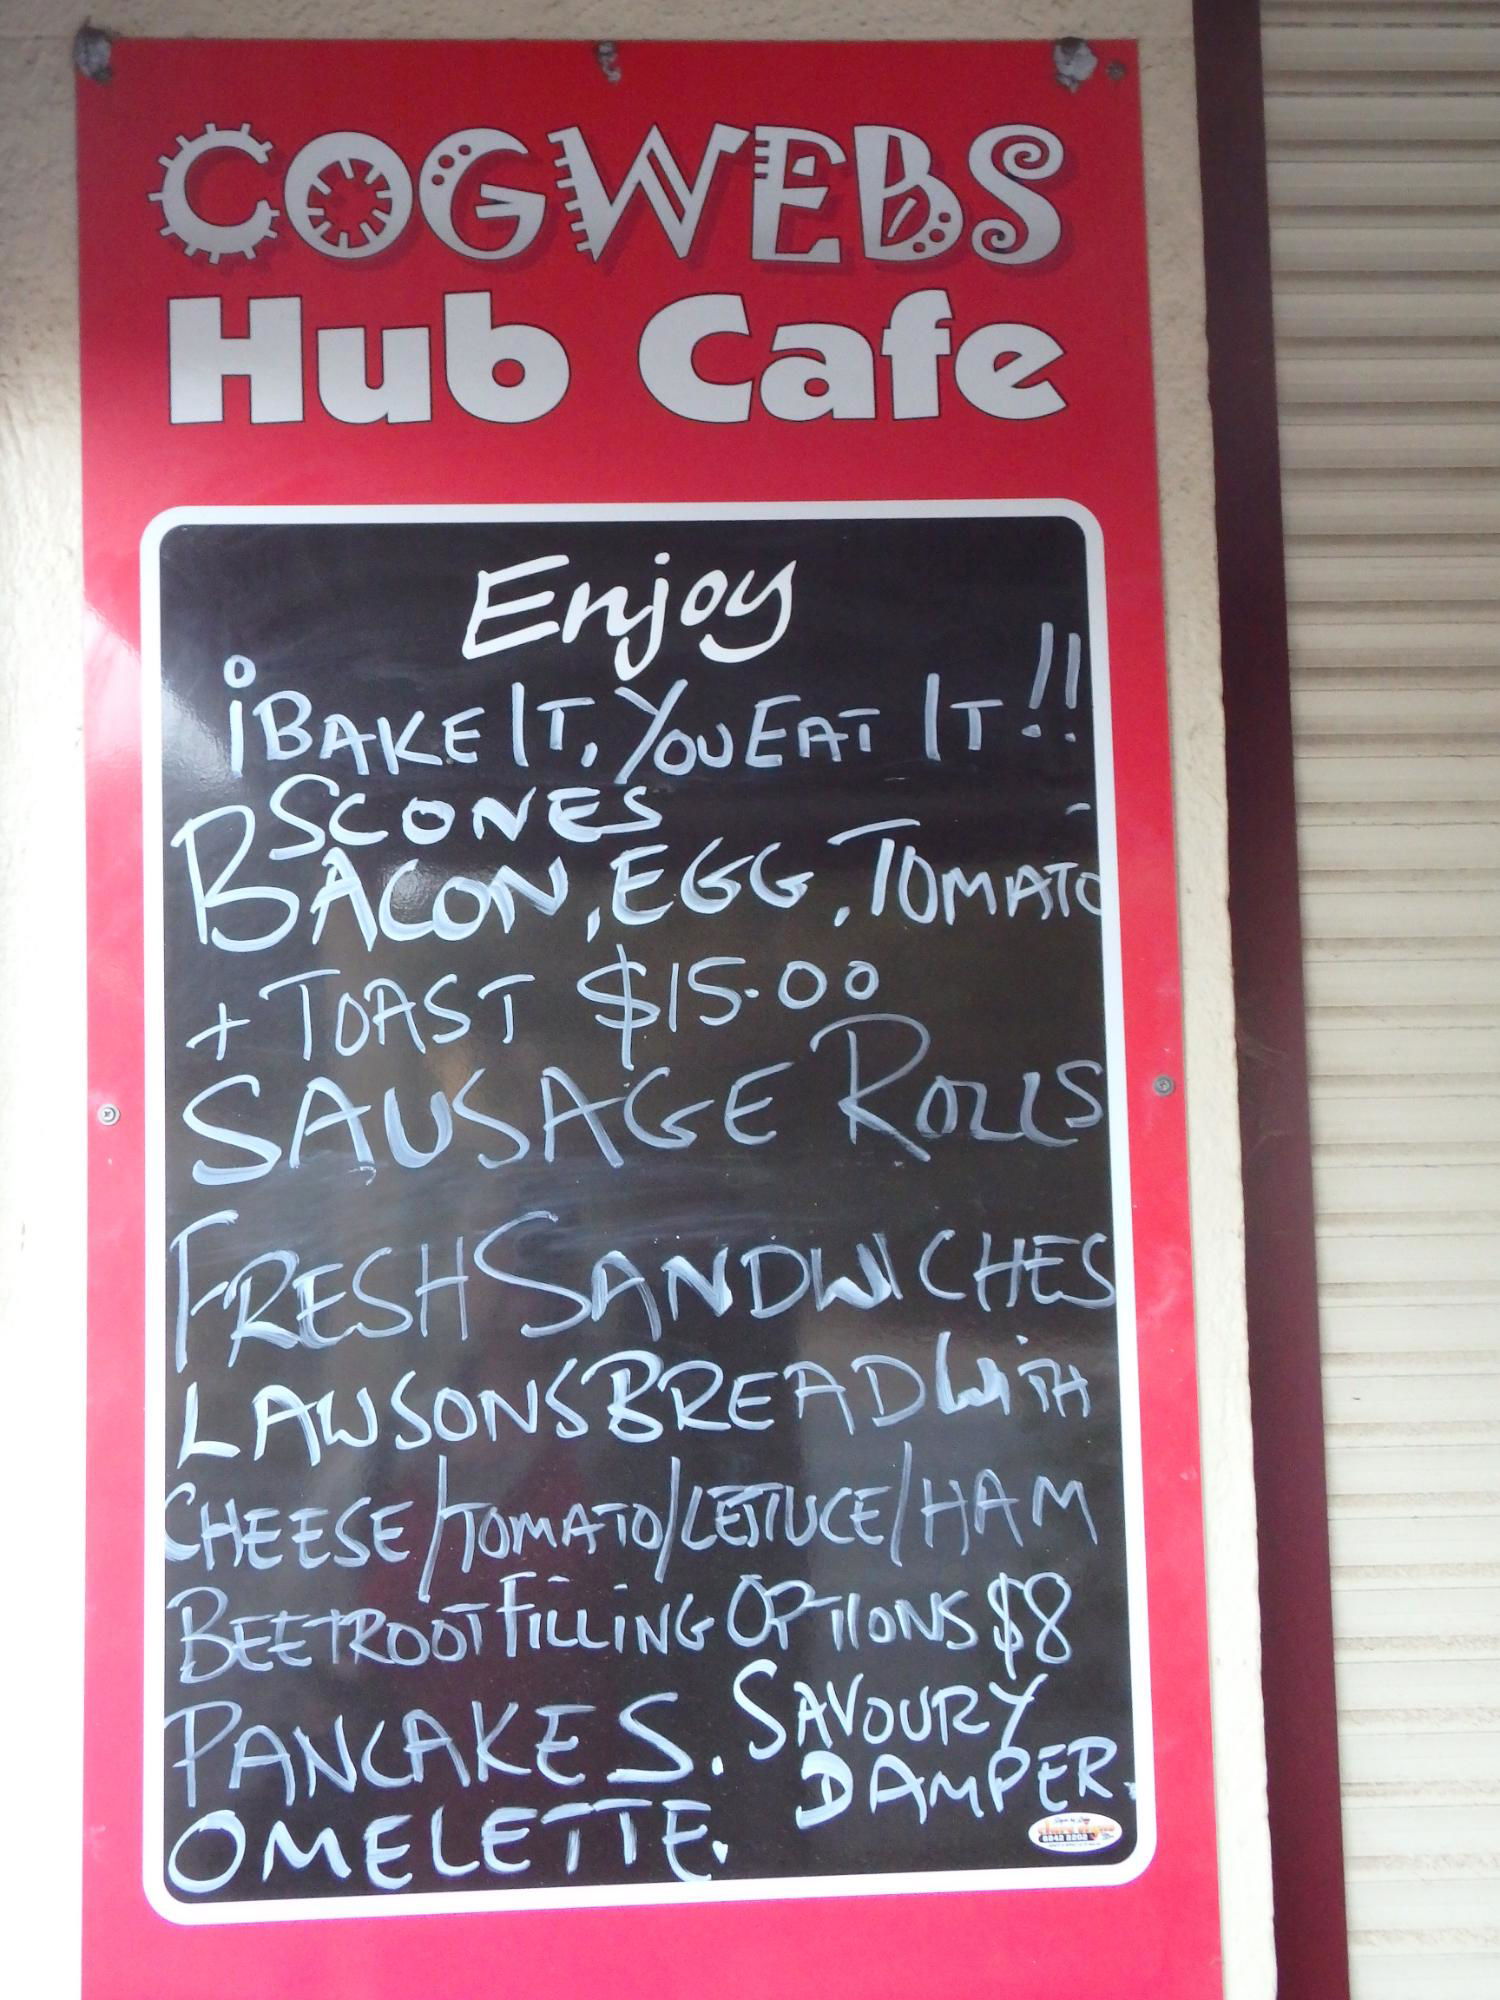 COGWEBS
Hub Cafe
Enjoy
iBAKE IT, YOU EAT IT!!
SCONES
BACON, EGG, TOMATO
+ TOAST $15.00
SAUSAGE ROLLS
FRESH SANDWICHES
LAWSONS BREAD WITH
CHEESE/TOMATO/LETTUCE/HAM
BEETROOT FILLING OPTIONS $8
PANCAKES. SAVOURY
DAMPER.
OMELETTE.
8842 2202